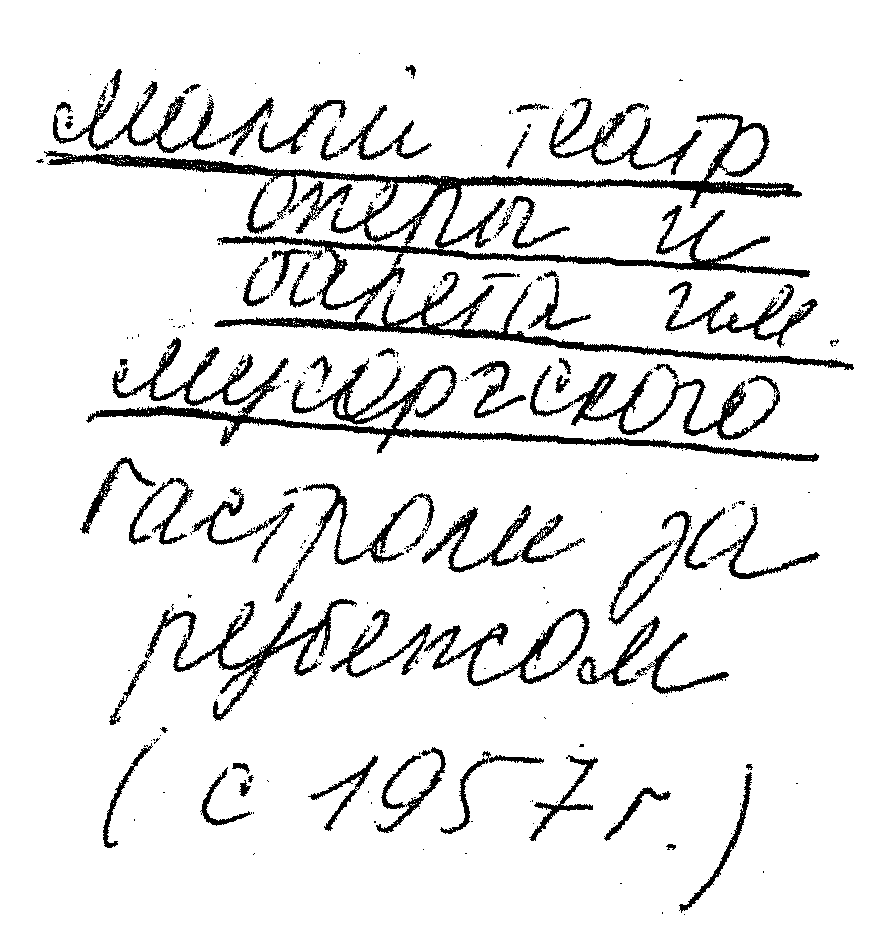 Малый театр
оперы и
балета им.
Мусоргского
Гастроли за
рубежом
(с 1957 г.)